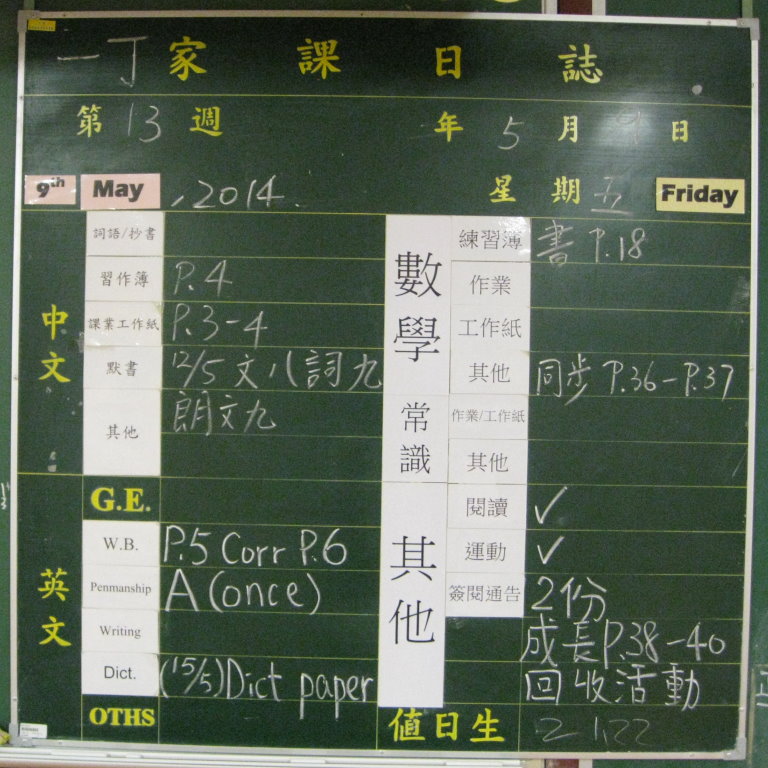 一丁家課日誌
第13週 年5月9日
9th May , 2014. 星期五 Friday
中文
詞語/抄書
習作簿 P.4
課業工作紙 P.3-4
默書 12/5 文八詞九
其他 朗文九
英文
G.E.
W.B. P.5 Corr P.6
Penmanship A (once)
Writing
Dict. (15/5) Dict paper
OTHS
數學
練習簿 書 P.18
作業
工作紙
其他 同步 P.36-P.37
常識
作業/工作紙
其他
其他
閱讀 ✓
運動 ✓
簽閱通告 2份
成長P.38-40
回收活動
值日生